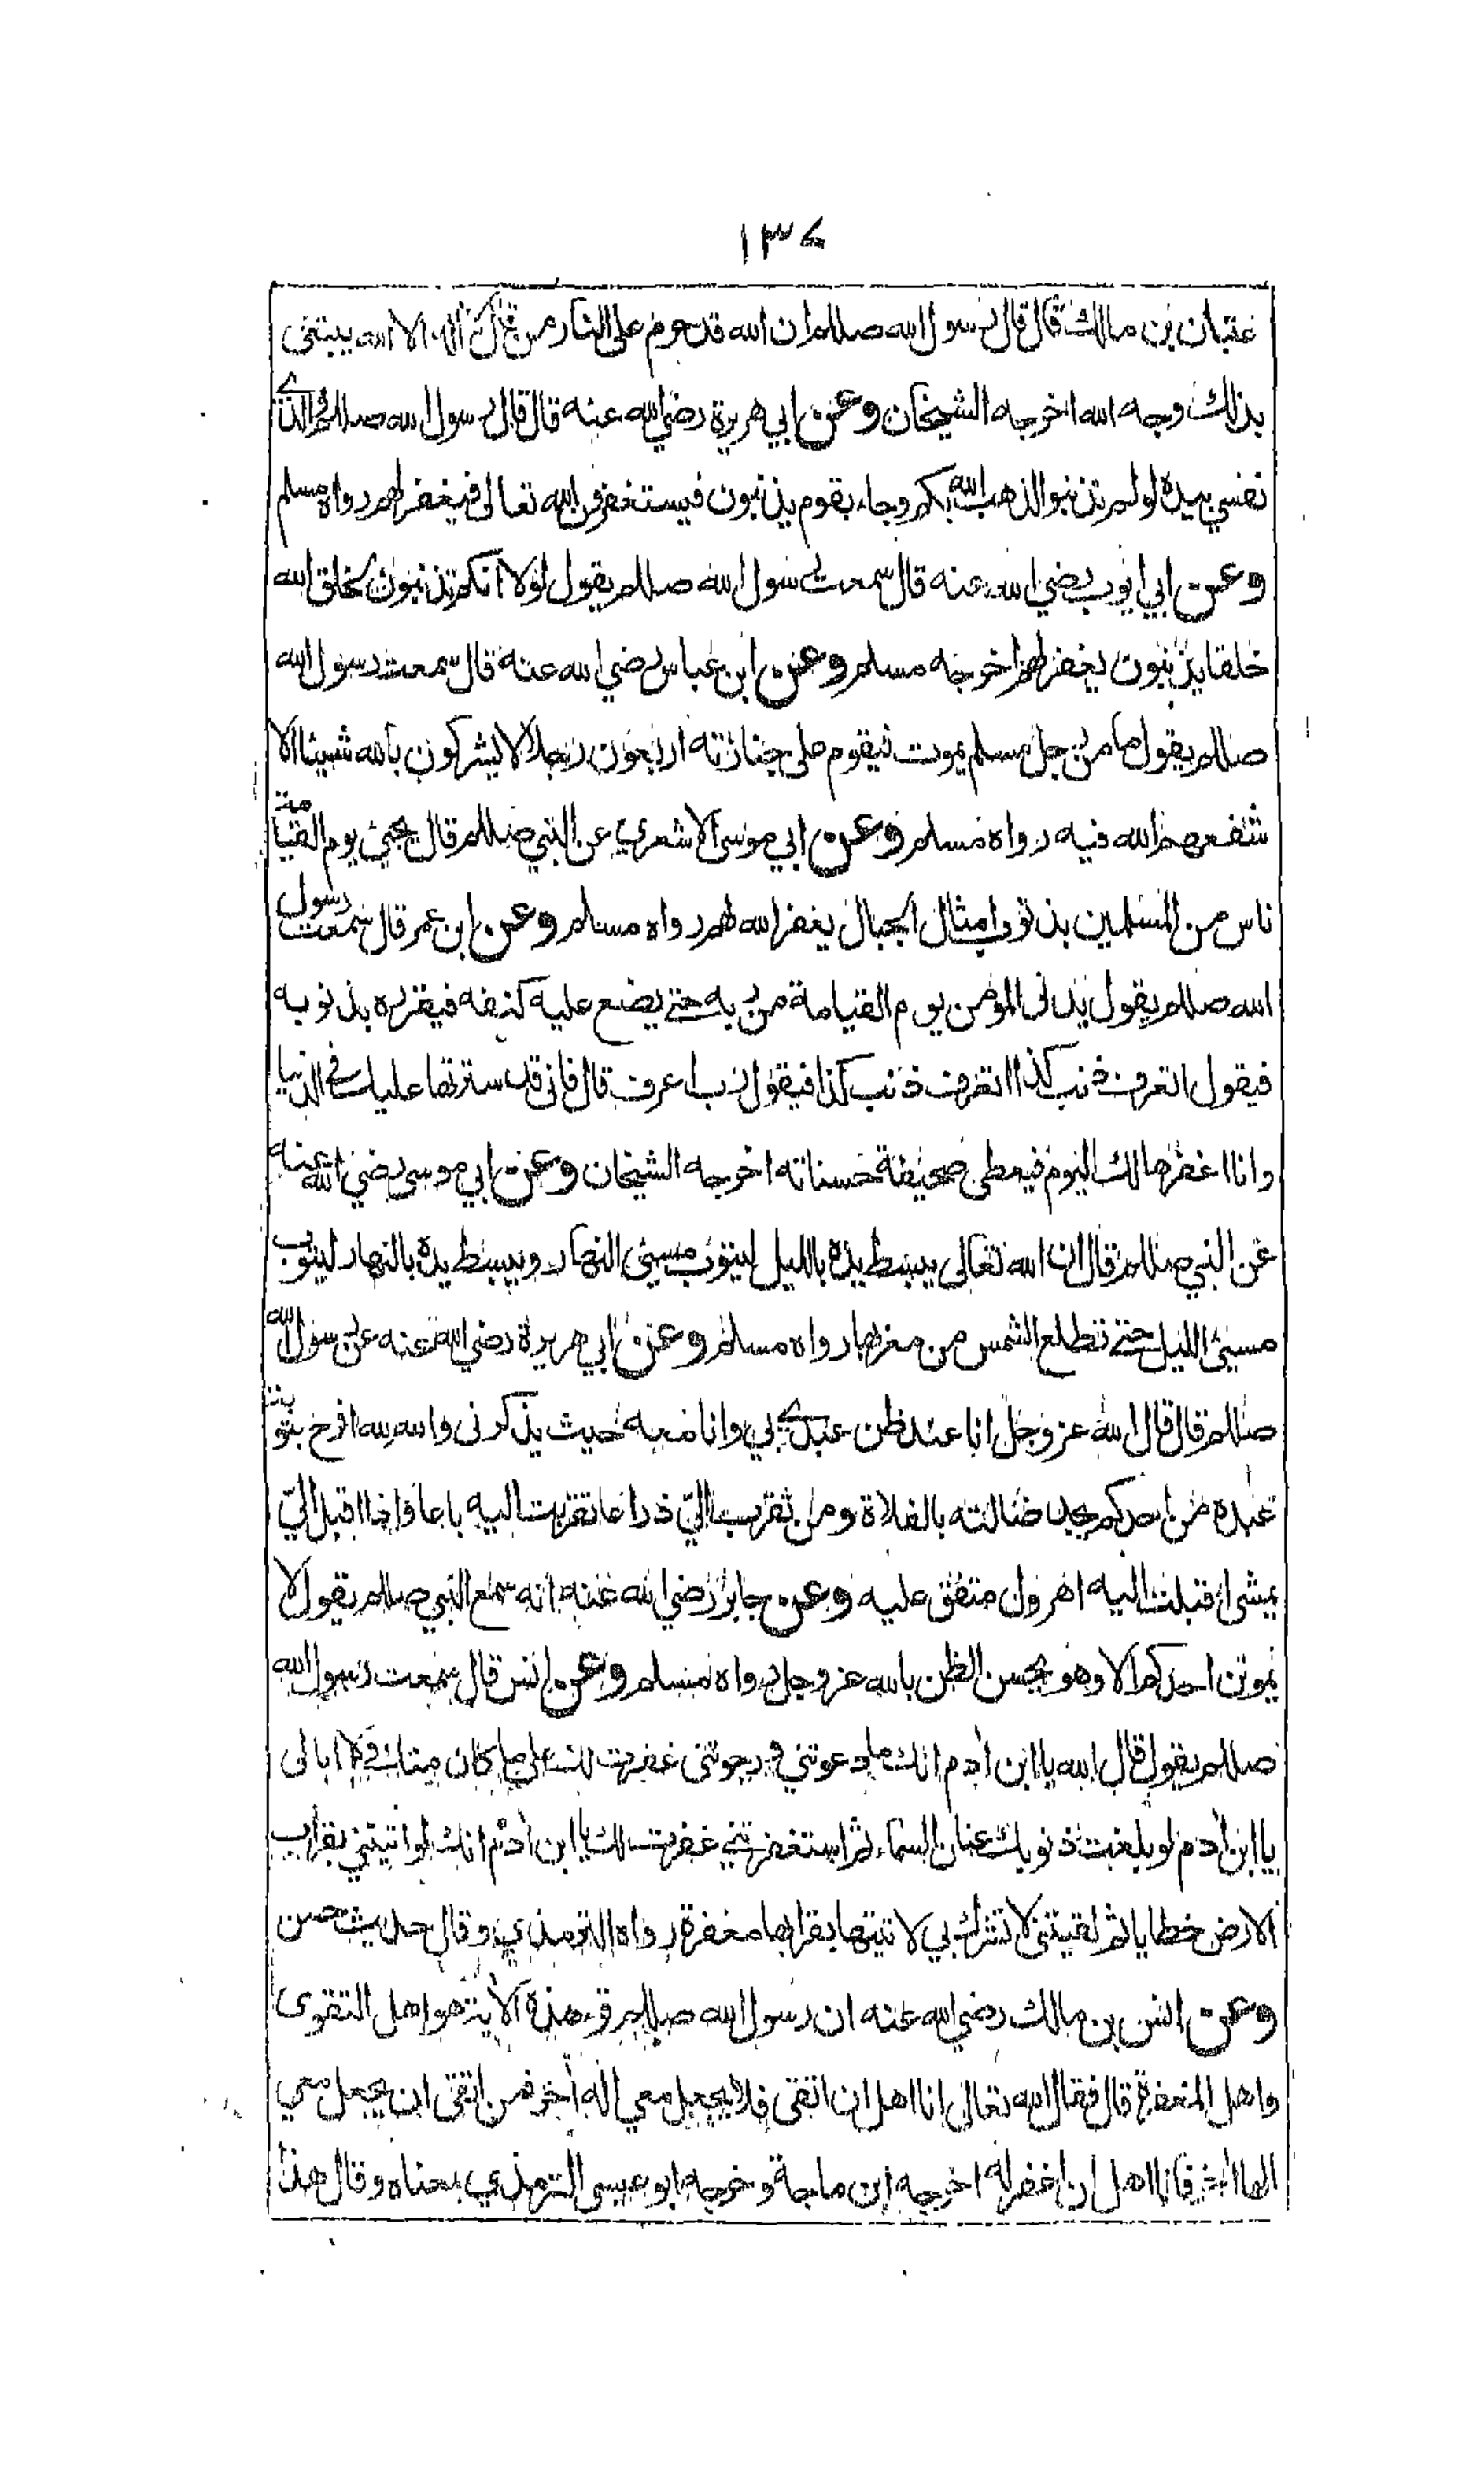 ١٣٧
عتبان بن مالك قال قال رسول الله صللم ان الله قد حرم على النار من قال لا اله الا الله يبتغى
بذلك وجه الله اخرجه الشيخان وعن ابي هريرة رضي الله عنه قال قال رسول الله صللم والذي
نفسي بيده لو لم تذنبوا لذهب الله بكم وجاء بقوم يذنبون فيستغفرون الله تعالى فيغفر لهم رواه مسلم
وعن ابي ايوب رضي الله عنه قال سمعت رسول الله صللم يقول لولا انكم تذنبون لخلق الله
خلقا يذنبون يغفر لهم اخرجه مسلم وعن ابن عباس رضي الله عنه قال سمعت رسول الله
صللم يقول ما من رجل مسلم يموت فيقوم على جنازته اربعون رجلا لا يشركون بالله شيئا الا
شفعهم الله فيه رواه مسلم وعن ابي موسى الاشعري عن النبي صللم قال يجيئ يوم القيامة
ناس من المسلمين بذنوب امثال الجبال يغفر الله لهم رواه مسلم وعن ابن عمر قال سمعت رسول
الله صللم يقول يدنى المؤمن يوم القيامة من ربه حتى يضع عليه كنفه فيقرره بذنوبه
فيقول اتعرف ذنب كذا اتعرف ذنب كذا فيقول رب اعرف قال فانى قد سترتها عليك في الدنيا
وانا اغفرها لك اليوم فيعطى صحيفة حسناته اخرجه الشيخان وعن ابي موسى رضي الله عنه
عن النبي صللم قال ان الله تعالى يبسط يده بالليل ليتوب مسيئ النهار ويبسط يده بالنهار ليتوب
مسيئ الليل حتى تطلع الشمس من مغربها رواه مسلم وعن ابي هريرة رضي الله عنه عن رسول الله
صللم قال قال الله عز وجل انا عند ظن عبدي بي وانا معه حيث يذكرنى والله لله افرح بتوبة
عبده من احدكم يجد ضالته بالفلاة ومن تقرب الي ذراعا تقربت اليه باعا واذا اقبل الي
يمشى اقبلت اليه اهرول متفق عليه وعن جابر رضي الله عنه انه سمع النبي صللم يقول لا
يموتن احدكم الا وهو يحسن الظن بالله عز وجل رواه مسلم وعن انس قال سمعت رسول الله
صللم يقول قال الله يا ابن ادم انك ما دعوتني ورجوتنى غفرت لك على ما كان منك ولا ابالى
يا ابن ادم لو بلغت ذنوبك عنان السماء ثم استغفرتني غفرت لك يا ابن ادم انك لو اتيتني بقراب
الارض خطايا ثم لقيتنى لا تشرك بي لاتيتها بقرابها مغفرة رواه الترمذي وقال حديث حسن
وعن انس بن مالك رضي الله عنه ان رسول الله صللم قرء هذه الاية هو اهل التقوى
واهل المغفرة قال فقال الله تعالى انا اهل ان اتقى فلا يجعل معي اله أخر فمن اتقى ان يجعل معي
الها أخر فانا اهل ان اغفر له اخرجه ابن ماجة وخرجه ابو عيسى الترمذي بمعناه وقال هذا